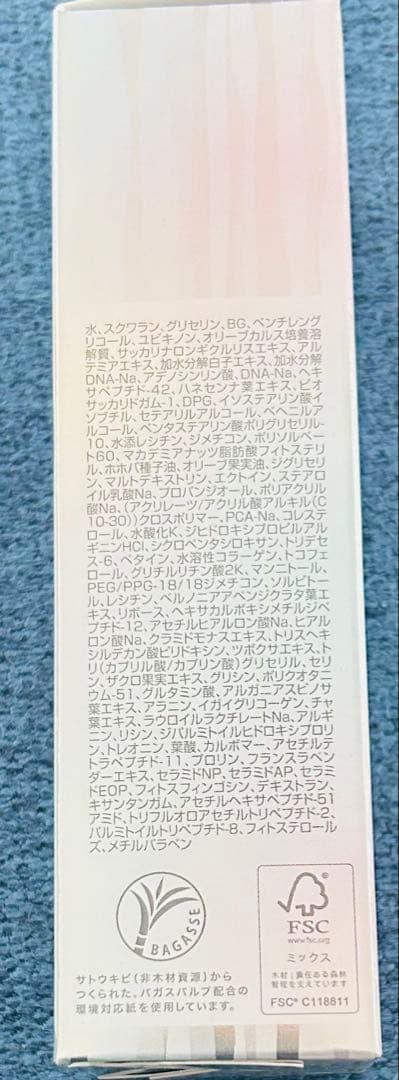 水、スクワラン、グリセリン、BG、ペンチレング
リコール、ユビキノン、オリーブカルス培養溶
解質、サッカリナロンギクルリスエキス、アル
テミアエキス、加水分解白子エキス、加水分解
DNA-Na、アデノシンリン酸、DNA-Na、ヘキ
サペプチド-42、ハネセンナ葉エキス、ビオ
サッカリドガム-1、DPG、イソステアリン酸イ
ソプチル、セテアリルアルコール、ベヘニルア
ルコール、ペンタステアリン酸ポリグリセリル-
10、水添レシチン、ジメチコン、ポリソルベー
ト60、マカデミアナッツ脂肪酸フィトステリ
ル、ホホバ種子油、オリーブ果実油、ジグリセリ
ン、マルトデキストリン、エクトイン、ステアロ
イル乳酸Na、プロパンジオール、ポリアクリル
酸Na、(アクリレーツ/アクリル酸アルキル(C
10-30))クロスポリマー、PCA-Na、コレステ
ロール、水酸化K、ジヒドロキシプロピルアル
ギニンHCl、シクロペンタシロキサン、トリデセ
ス-6、ベタイン、水溶性コラーゲン、トコフェ
ロール、グリチルリチン酸2K、マンニトール、
PEG/PPG-18/18ジメチコン、ソルビトー
ル、レシチン、ベルノニアアペンジクラタ葉エ
キス、リボース、ヘキサカルボキシメチルジペ
プチド-12、アセチルヒアルロン酸Na、ヒアル
ロン酸Na、クラミドモナスエキス、トリスヘキ
シルデカン酸ピリドキシン、ツボクサエキス、ト
リ(カプリル酸/カプリン酸)グリセリル、セリ
ン、ザクロ果実エキス、グリシン、ポリクオタニ
ウム-51、グルタミン酸、アルガニアスピノサ
葉エキス、アラニン、イガイグリコーゲン、チャ
葉エキス、ラウロイルラクチレートNa、アルギ
ニン、リシン、ジパルミトイルヒドロキシプロリ
ン、トレオニン、葉酸、カルボマー、アセチルテ
トラペプチド-11、プロリン、フランスラベン
ダーエキス、セラミドNP、セラミドAP、セラミ
ドEOP、フィトスフィンゴシン、デキストラン、
キサンタンガム、アセチルヘキサペプチド-51
アミド、トリフルオロアセチルトリペプチド-2、
パルミトイルトリペプチド-8、フィトステロール
ズ、メチルパラベン
BAGASSE
サトウキビ(非木材資源)から
つくられた、バガスパルプ配合の
環境対応紙を使用しています。
FSC
www.fsc.org
ミックス
木材|責任ある森林
管理を支えています
FSC® C118811